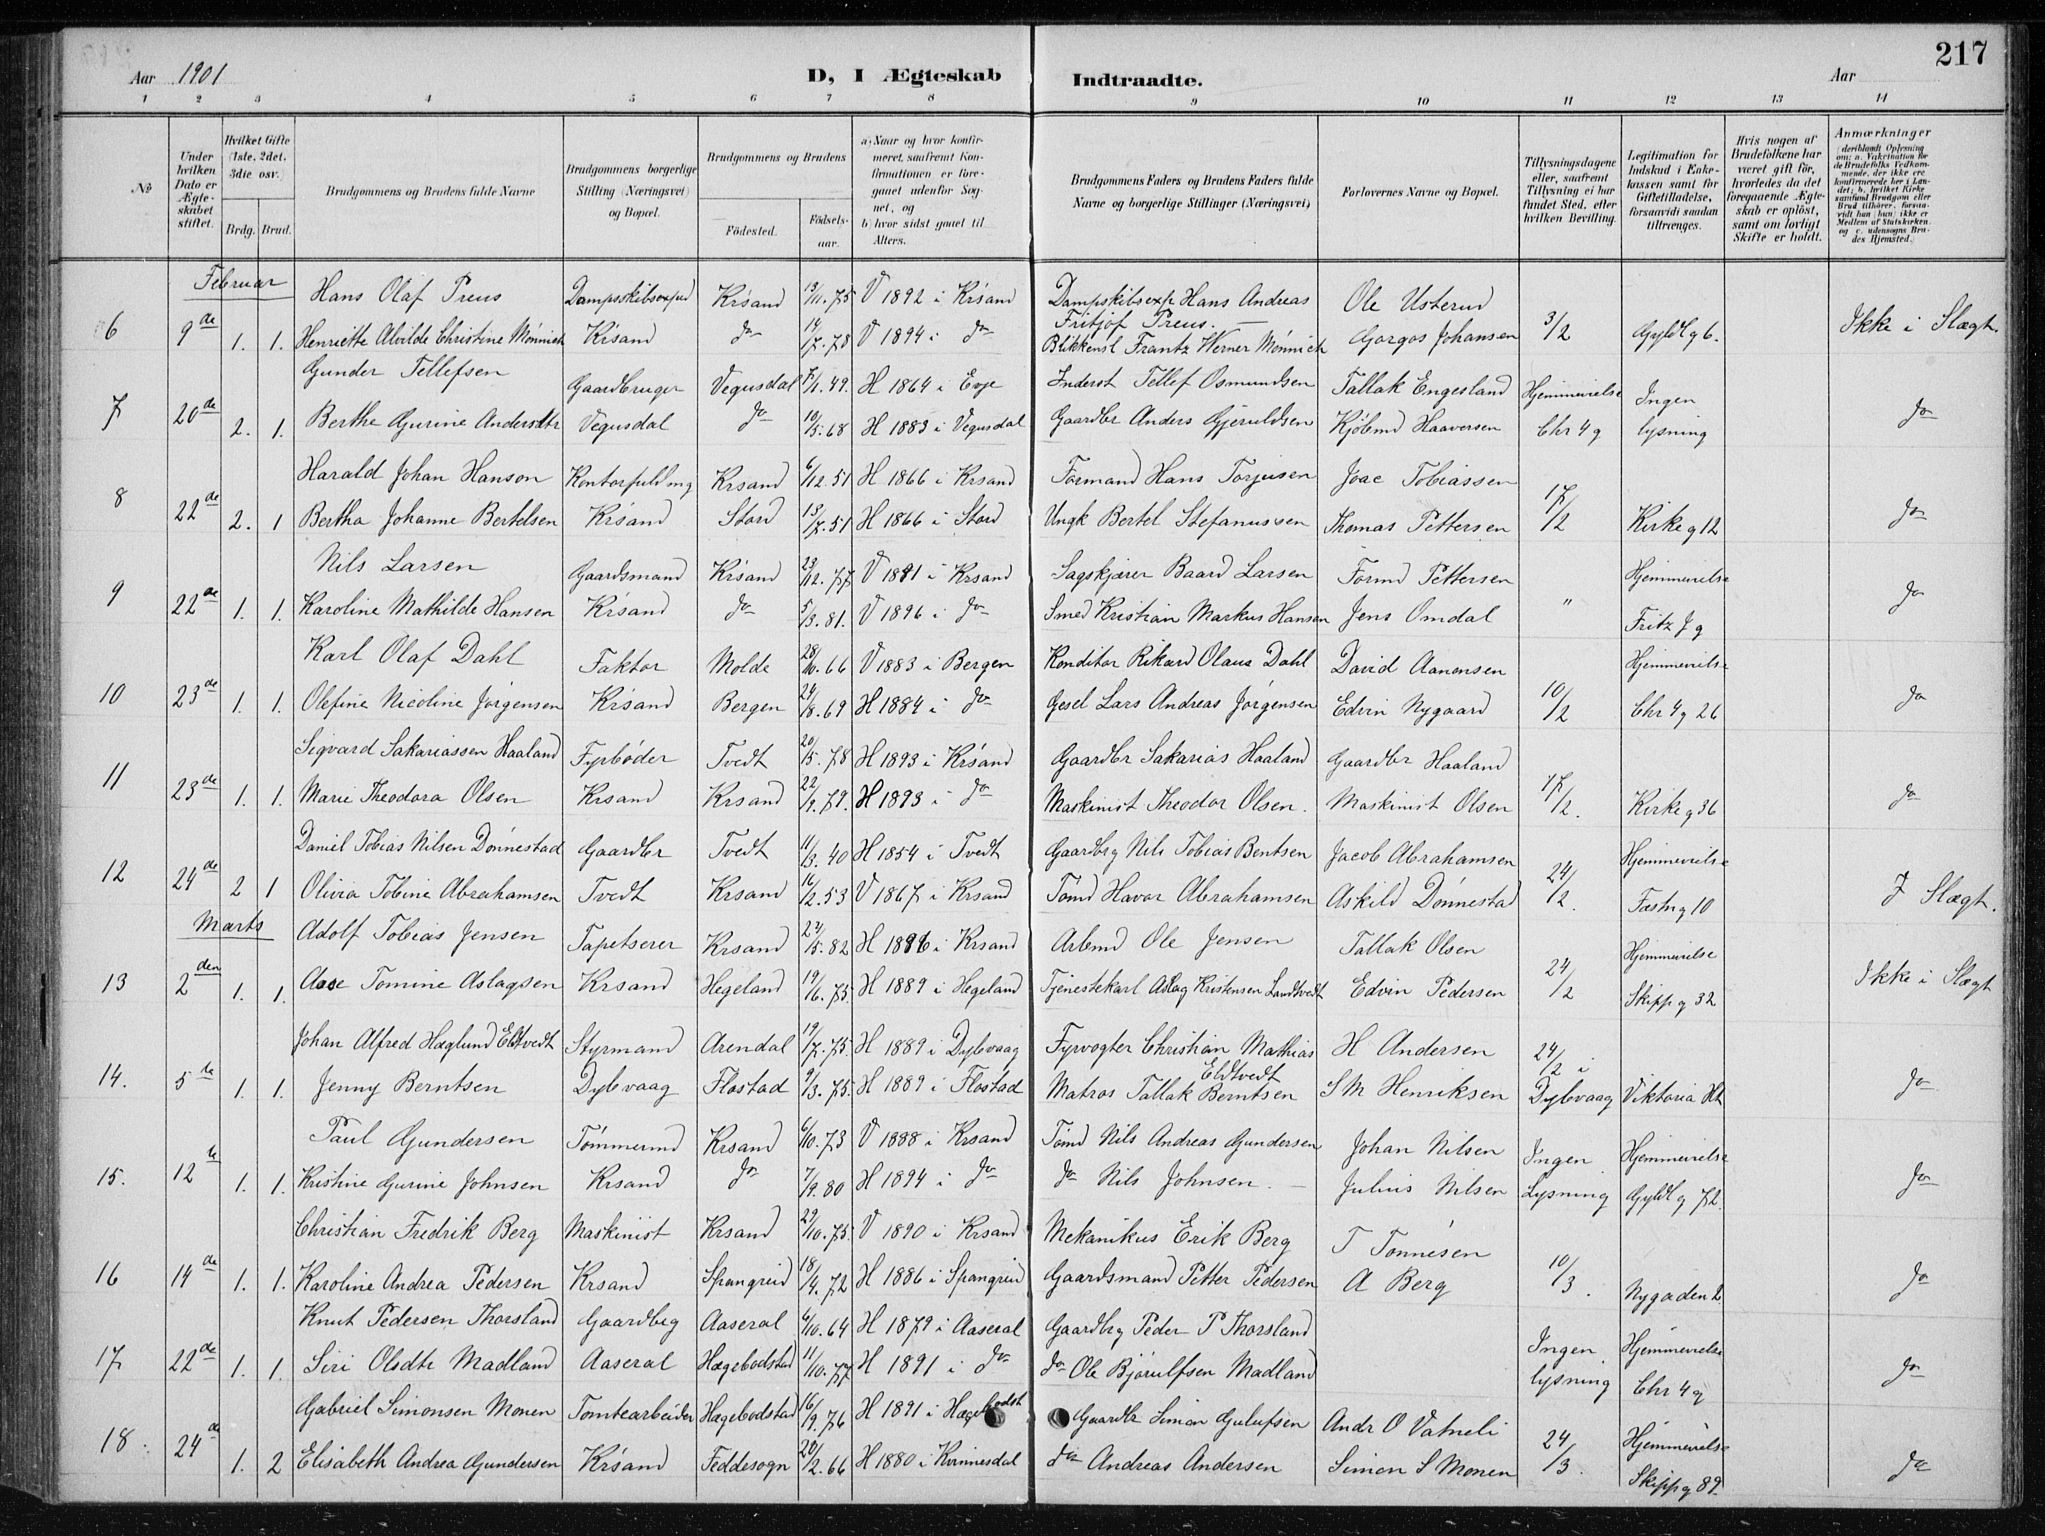 217
Aar 1901
D, I Ægteskab Indtraadte.
Aar
1 2 3 4 5 6 7 8 9 10 11 12 13 14
No
Under hvilken Dato er Ægteskabet stiftet.
Hvilket Gifte (1ste, 2det, 3die osv.)
Brdg. Brud.
Brudgommens og Brudens fulde Navne
Brudgommens borgerlige Stilling (Næringsvei) og Bopæl.
Brudgommens og Brudens
Födested.
Födselsaar.
a) Naar og hvor konfirmeret, saafremt Konfirmationen er foregaaet udenfor Sognet, og
b) hvor sidst gaaet til Alters.
Brudgommens Faders og Brudens Faders fulde Navne og borgerlige Stillinger (Næringsvei)
Forlovernes Navne og Bopæl.
Tillysningsdagene eller, saafremt Tillysning ei har fundet Sted, efter hvilken Bevilling.
Legitimation for Indskud i Enkekassen samt for Giftetilladelse, forsaavidt saadan tiltrænges.
Hvis nogen af Brudefolkene har været gift för, hvorledes da det foregaaende Ægteskab er oplöst, samt om lovligt Skifte er holdt.
Anmærkninger (deriblandt Oplysning om: a. Vakcination for de Brudefolks Vedkommende, der ikke ere konfirmerede her i Landet; b. hvilket Kirkesamfund Brudgom eller Brud tilhörer, forsaavidt han (hun) ikke er Medlem af Statskirken, og c. udensogns Brudes Hjemsted.)
Februar
Hans Olaf Preus Dampskibsexped Krsand 13/11.75 V 1892 i Krsand Dampskibsexp Hans Andreas Fritjof Preus. Ole Usterud
6 9de 1. 1. Henriette Alvilde Christine Mönnich Krsand do 14/7.78 V 1894 i do Blikkensl Frantz Werner Mönnich Gorgos Johansen 3/2 Gyldl g 6. Ikke i Slægt.
Gunder Tellefsen Gaardbruger Vegusdal 7/1.49. H 1864 i Evje Inderst Tellef Osmundsen Tallak Engesland Hjemmevielse Ingen
7 20de 2. 1. Berthe Gurine Andersdtr Vegusdal do 10/5.68 H 1883 i Vegusdal Gaardbr Anders Gjeruldsen Kjöbmd Haaversen Chr 4 g lysning do
Harald Johan Hanson Kontorfuldmg Krsand 6/12.51 H 1866 i Krsand Formand Hans Torjusen Joac Tobiassen
8 22de 2. 1 Bertha Johanne Bertelsen Krsand Stord 13/7.51 H 1866 i Stord Ungk Bertel Stefanussen Thomas Pettersen 17/2 Kirke g 12 do
Nils Larsen Gaardsmand Krsand 23/12.77 V 1891 i Krsand Sagskjærer Baard Larsen Formd Pettersen Hjemmevielse
9 22de 1. 1. Karoline Mathilde Hansen Krsand do 5/3.81. V 1896 i do Smed Kristian Markus Hansen Jens Omdal " Fritz J g do
Karl Olaf Dahl Faktor Molde 28/10.66 V 1883 i Bergen Konditor Rikard Olaus Dahl David Aanensen Hjemmevielse
10 23de 1. 1. Olefine Nicoline Jörgensen Krsand Bergen 24/8.69 H 1884 i do Gesel Lars Andreas Jörgensen Edvin Nygaard 10/2 Chr 4 g 26 do
Sigvard Sakariassen Haaland Fyrböder Tvedt 20/5.78 H 1893 i Krsand Gaardbr Sakarias Haaland Gaardbr Haaland
11 23de 1. 1. Marie Theodora Olsen Krsand Krsand 22/9.79. H 1893 i do Maskinist Theodor Olsen. Maskinist Olsen 17/2. Kirke g 36 do
Daniel Tobias Nilsen Dönnestad Gaardbr Tvedt 11/3.40 H 1854 i Tvedt Gaardbrg Nils Tobias Bentsen Jacob Abrahamsen Hjemmevielse
12 24de 2 1 Olivia Tobine Abrahamsen Tvedt Krsand 16/2.53 V 1867 i Krsand Tömd Havor Abrahamsen Askild Dönnestad 24/2. Fæstn g 10 I Slægt.
Marts
Adolf Tobias Jensen Tapetserer Krsand 22/5.82 H 1896 i Krsand Arbmd Ole Jensen Tallak Olsen Hjemmevielse
13 2den 1. 1. Aase Tomine Aslagsen Krsand Hegeland 19/6.75 H 1889 i Hegeland Tjenestekarl Aslag Kristensen Landtvedt Edvin Pedersen 24/2 Skipp g 32 Ikke i Slægt
Johan Alfred Haglund Eldtvedt Styrmand Arendal 19/7.75. H 1889 i Dybvaag Fyrvogter Christian Mathias Eldtvedt H Andersen 24/2 i
14. 5te 1. 1. Jenny Berntsen Dybvaag Flostad 9/3.75. H 1889 i Flostad Matros Tallak Berntsen S M Henriksen Dybvaag Viktoria Ht do
Paul Gundersen Tömmermd Krsand 6/10.73 V 1888 i Krsand Tömd Nils Andreas Gundersen Johan Nilsen Ingen Hjemmevielse
15. 12te 1. 1. Kristine Gurine Johnsen Krsand do 7/9.80 H 1894 i do do Nils Johnsen. Julius Nilsen Lysning Gyldl g 72. do
Christian Fredrik Berg Maskinist Krsand 29/10.75. V 1890 i Krsand Mekanikus Erik Berg T Tönnesen
16 14de 1. 1. Karoline Andrea Pedersen Krsand Spangreid 18/4.72 H 1886 i Spangreid Gaardsmand Petter Pedersen A Berg 10/3. Nygaden 2. do
Knut Pedersen Thorsland Gaardbrg Aaseral 6/10.64 H 1879 i Aaseral Gaardbrg Peder P Thorsland Ingen Hjemmevielse
17 22de 1. 1. Siri Olsdtr Madland Aaseral Hægebodstad 11/10.77 H 1891 i do do Ole Björulfsen Madland lysning Chr 4 g do
Gabriel Simonsen Monen Tomtearbeider Hægebodstad 16/9.76 H 1891 i Hægebodst Gaardbr Simon Gulufsen Andr O Vatneli Hjemmevielse
18. 24de 1. 2 Elisabeth Andrea Gundersen Krsand Feddesogn 20/2.66 H 1880 i Kvinnesdal do Andreas Andersen Simon S Monen 24/3. Skipp g 89. do